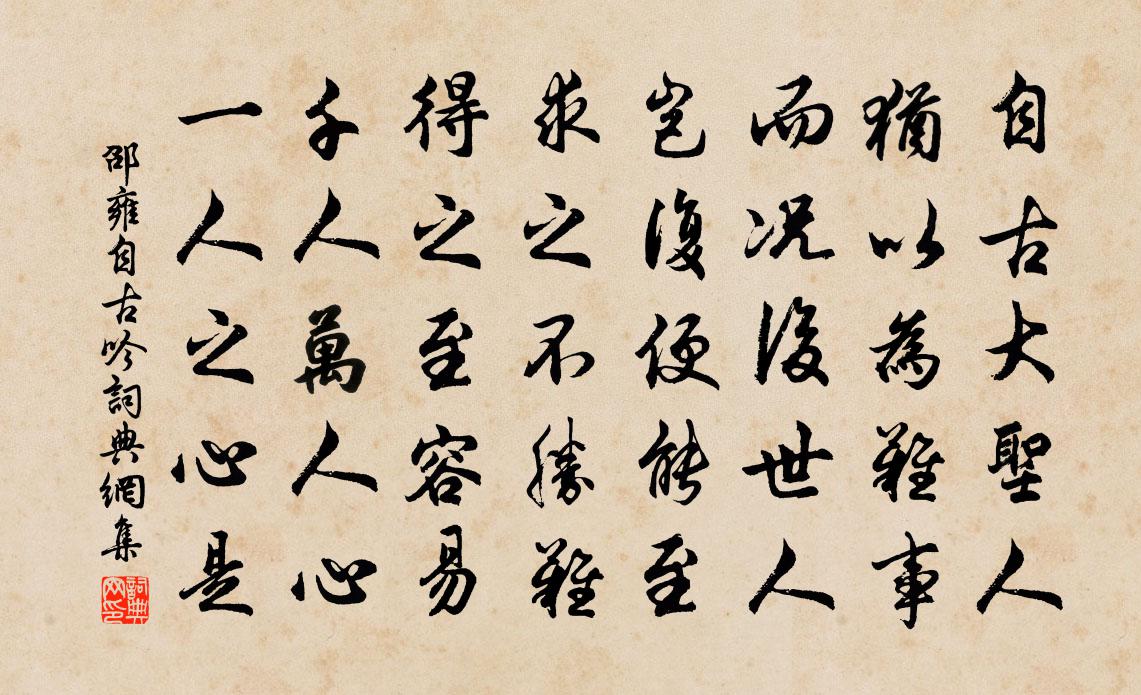 自古大聖人
猶以為難事
而況後世人
豈復便能至
求之不勝難
得之至容易
千人萬人心
一人之心是
邵雍自古吟詞典網集
詞典網印